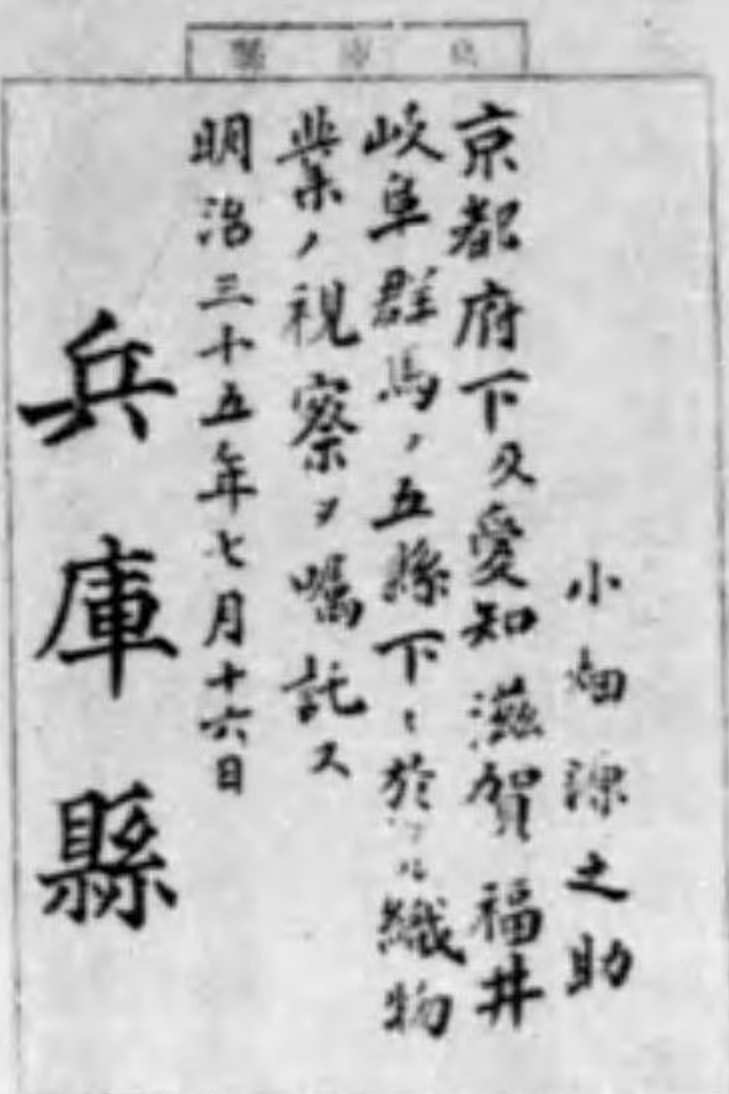 兵庫縣
小畑源之助
京都府下及愛知滋賀福井
岐阜群馬ノ五縣下ニ於ケル織物
業ノ視察ヲ嘱託ス
明治三十五年七月十六日
兵庫縣